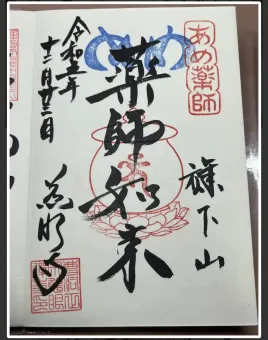 あめ薬師
旗下山
薬師如来
令和五年
十二月廿二日